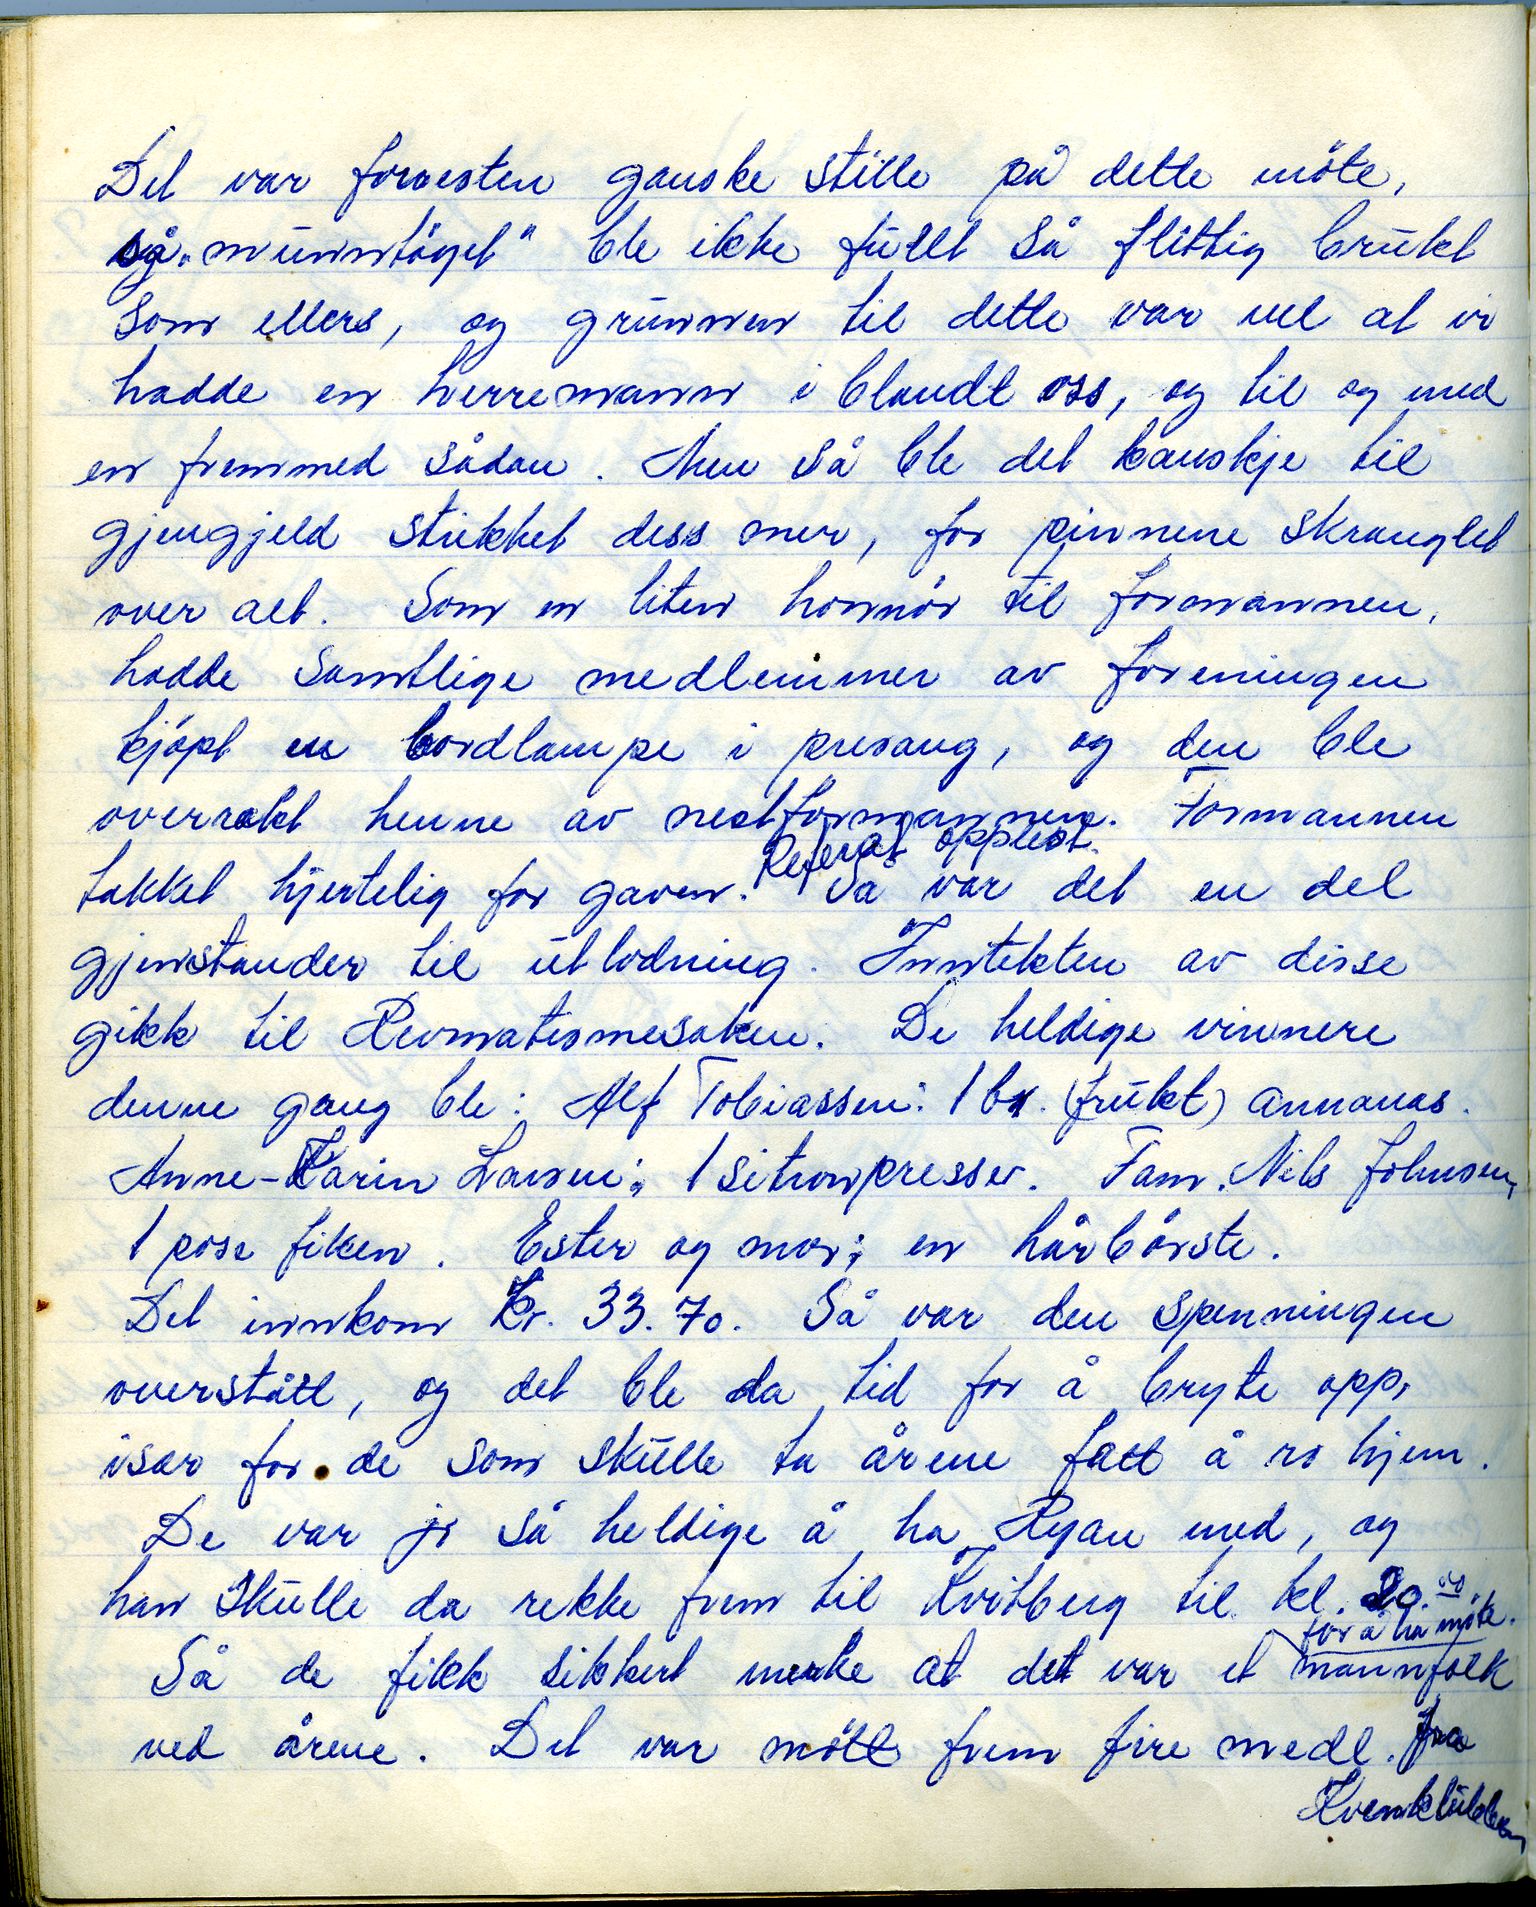 Det var forresten ganske stille på dette möte,
så „munntöyet" ble ikke fullt så flittig brukt
som ellers, og grunnen til dette var vel at vi
hadde en herremann i blandt oss, og til og med
en fremmed sådan. Men så ble det kanskje til
gjengjeld strikket dess mer, for pinnene skranglet
over alt. Som en liten honnör til formannen,
hadde samtlige medlemmer av foreningen
kjöpt en bordlampe i presang, og den ble
overrakt henne av nestformannen. Formannen
Referat opplest.
takket hjertelig for gaven. Så var det en del
gjenstander til utlodning. Inntekten av disse
gikk til Revmatismesaken. De heldige vinnere
denne gang ble: Alf Tobiassen: 1 bx. (frukt) annanas.
Anne-Karin Larsen; 1 sitronpresser. Fam. Nils Johnsen,
1 pose fiken. Ester og mor; en hårbörste.
Det innkom kr. 33.70. Så var den spenningen
overstått, og det ble da tid for å bryte opp,
især for de som skulle ta årene fatt å ro hjem.
De var jo så heldige å ha Ryan med, og
han skulle da rekke frem til Kvitberg til kl. 20.00
for å ha möte.
Så de fikk sikkert merke at det var et mannfolk
ved årene. Det var mött frem fire medl. fra
Kvenklubben